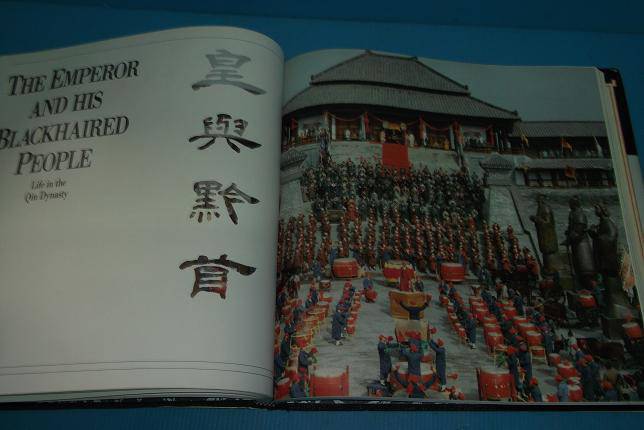 THE EMPEROR
AND HIS
BLACKHAIRED
PEOPLE
Life in the
Qin Dynasty
皇
與
黔
首